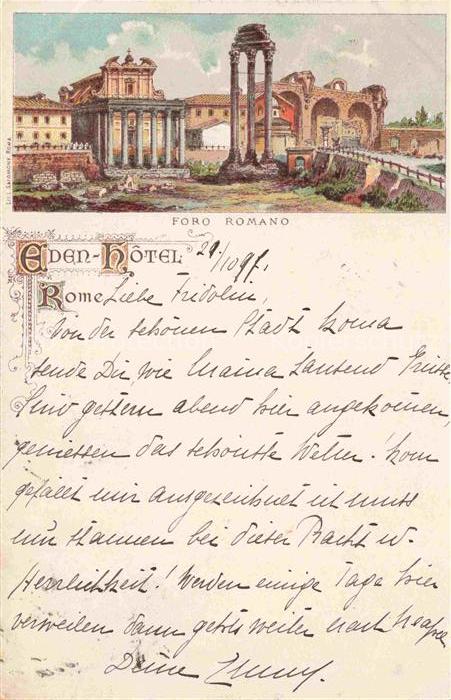 LIT. I. SALOMONE ROMA
FORO ROMANO
EDEN-HÔTEL 29/10 97.
ROME Liebe Fridolin,
Von der schönen Stadt Roma
sende Dir, wie Mama tausend Grüsse
Sind gestern abend hier angekommen,
geniessen das schönste Wetter! Rom
gefällt mir ausgezeichnet ich muss
nur staunen bei dieser Pracht u.
Herrlichkeit! Werden einige Tage hier
verweilen dann geht's weiter nach Neapel
Deine